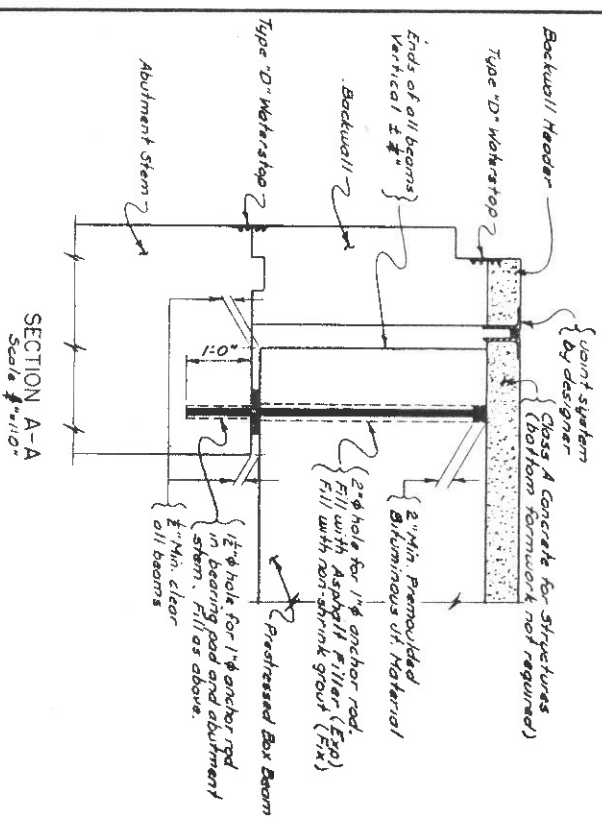 Backwall Header
Type "D" Waterstop
Ends of all beams
Vertical ±
Backwall
Type "D" Waterstop
Abutment Stem
Joint system
by designer
Class A Concrete for Structures
(bottom formwork not required)
2" Min. Premoulded
Bituminous Jt. Material
2"ϕ hole for 1"ϕ anchor rod.
Fill with Asphalt Filler (Exp)
Fill with non-shrink grout (Fix)
Prestressed Box Beam
1½"ϕ hole for 1"ϕ anchor rod
in bearing pad and abutment
stem. Fill as above.
½" Min. clear
all beams
1'-0"
SECTION A-A
Scale